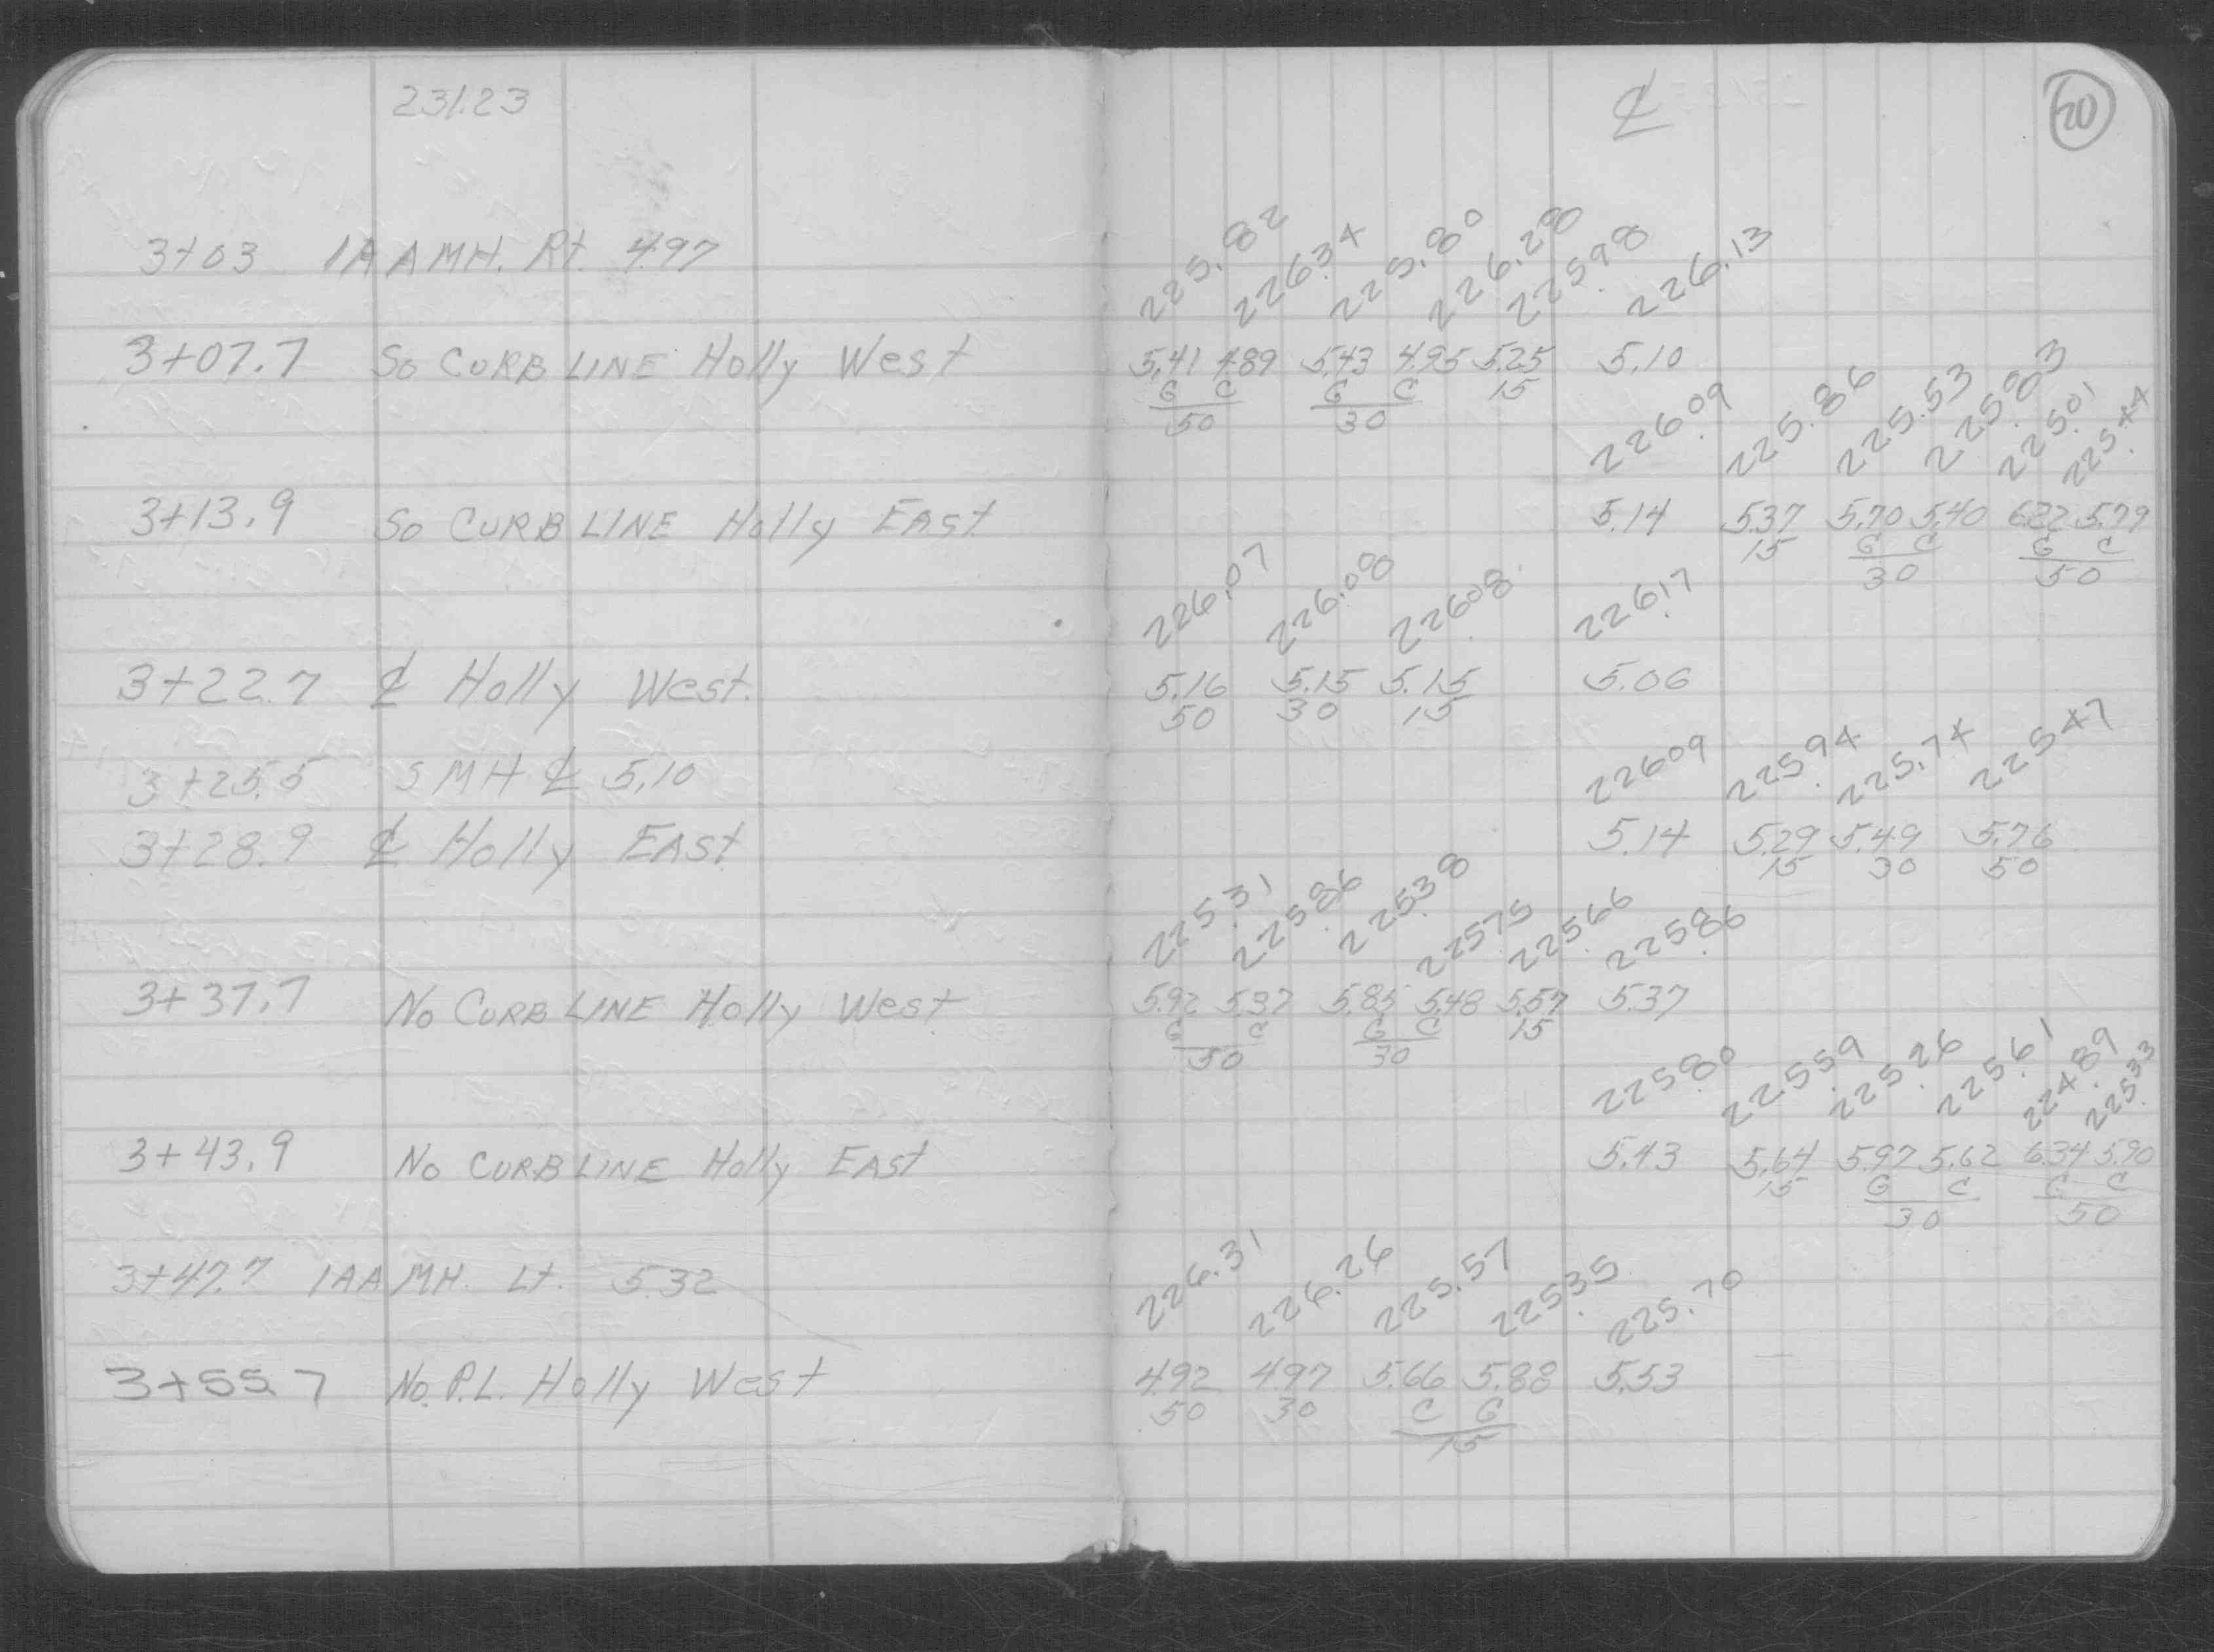 231.23 ₵ 20
3+03 IAAMH. Rt. 4.97
225.82 226.34 225.80 226.28 225.98 226.13
3+07.7 So CURB LINE Holly West 5.41 4.89 5.43 4.95 5.25 5.10
G C G C 15
50 30
226.09 225.86 225.53 225.83 225.01 225.44
3+13.9 So CURB LINE Holly EAST 5.14 5.37 5.70 5.40 6.22 5.79
15 G C G C
30 50
226.07 226.08 226.08 226.17
3+22.7 ₵ Holly West. 5.16 5.15 5.15 5.06
50 30 15
3+25.5 SMH ₵ 5.10
226.09 225.94 225.74 225.47
3+28.9 ₵ Holly EAST 5.14 5.29 5.49 5.76
15 30 50
225.31 225.86 225.38 225.75 225.66 225.86
3+37.7 No CURB LINE Holly West 5.92 5.37 5.85 5.48 5.57 5.37
G C G C 15
50 30
225.80 225.59 225.26 225.61 224.89 225.33
3+43.9 No CURB LINE Holly EAST 5.43 5.64 5.97 5.62 6.34 5.90
15 G C G C
30 50
3+47.7 IAA MH. Lt. 5.32
226.31 226.26 225.57 225.35 225.70
3+55.7 No. P.L. Holly West 4.92 4.97 5.66 5.88 5.53
50 30 C G
15